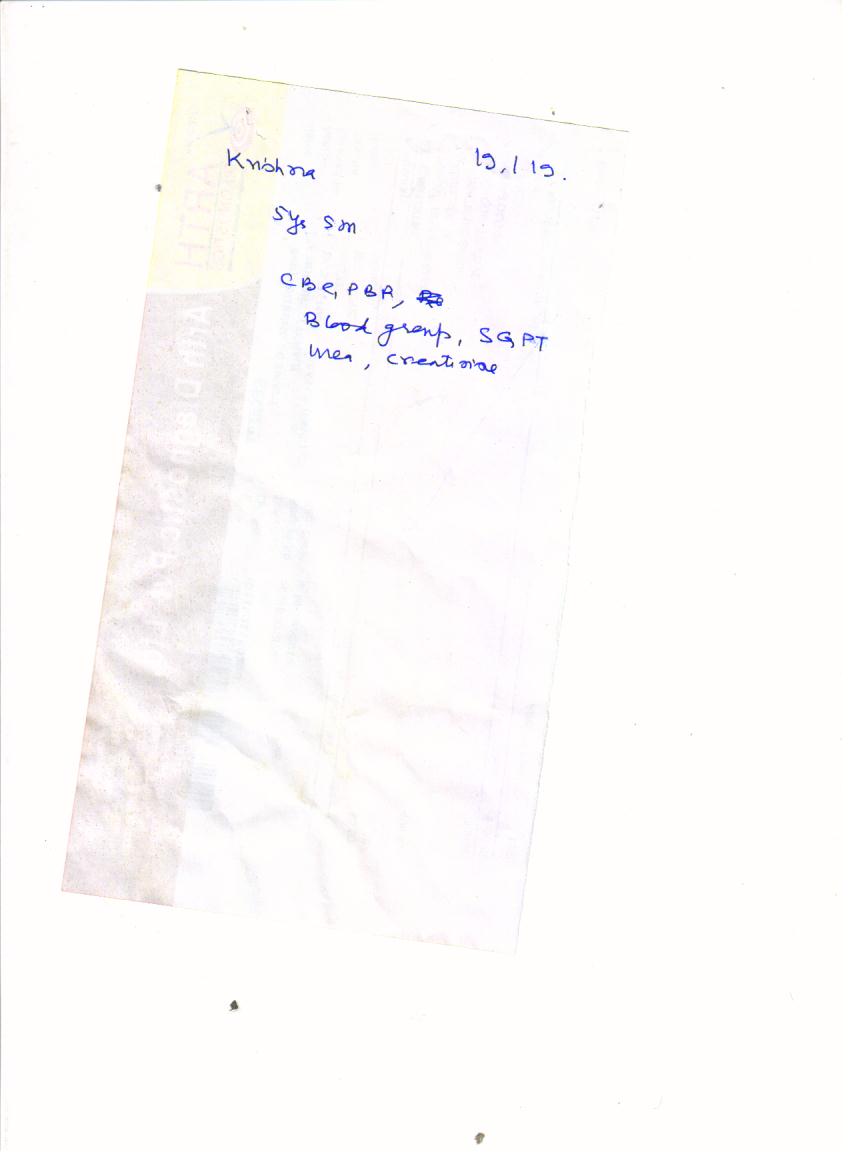 Krishna 19/1 19.
5ys 5m
CBC, PBR,
Blood group, SGPT
urea, creatinine